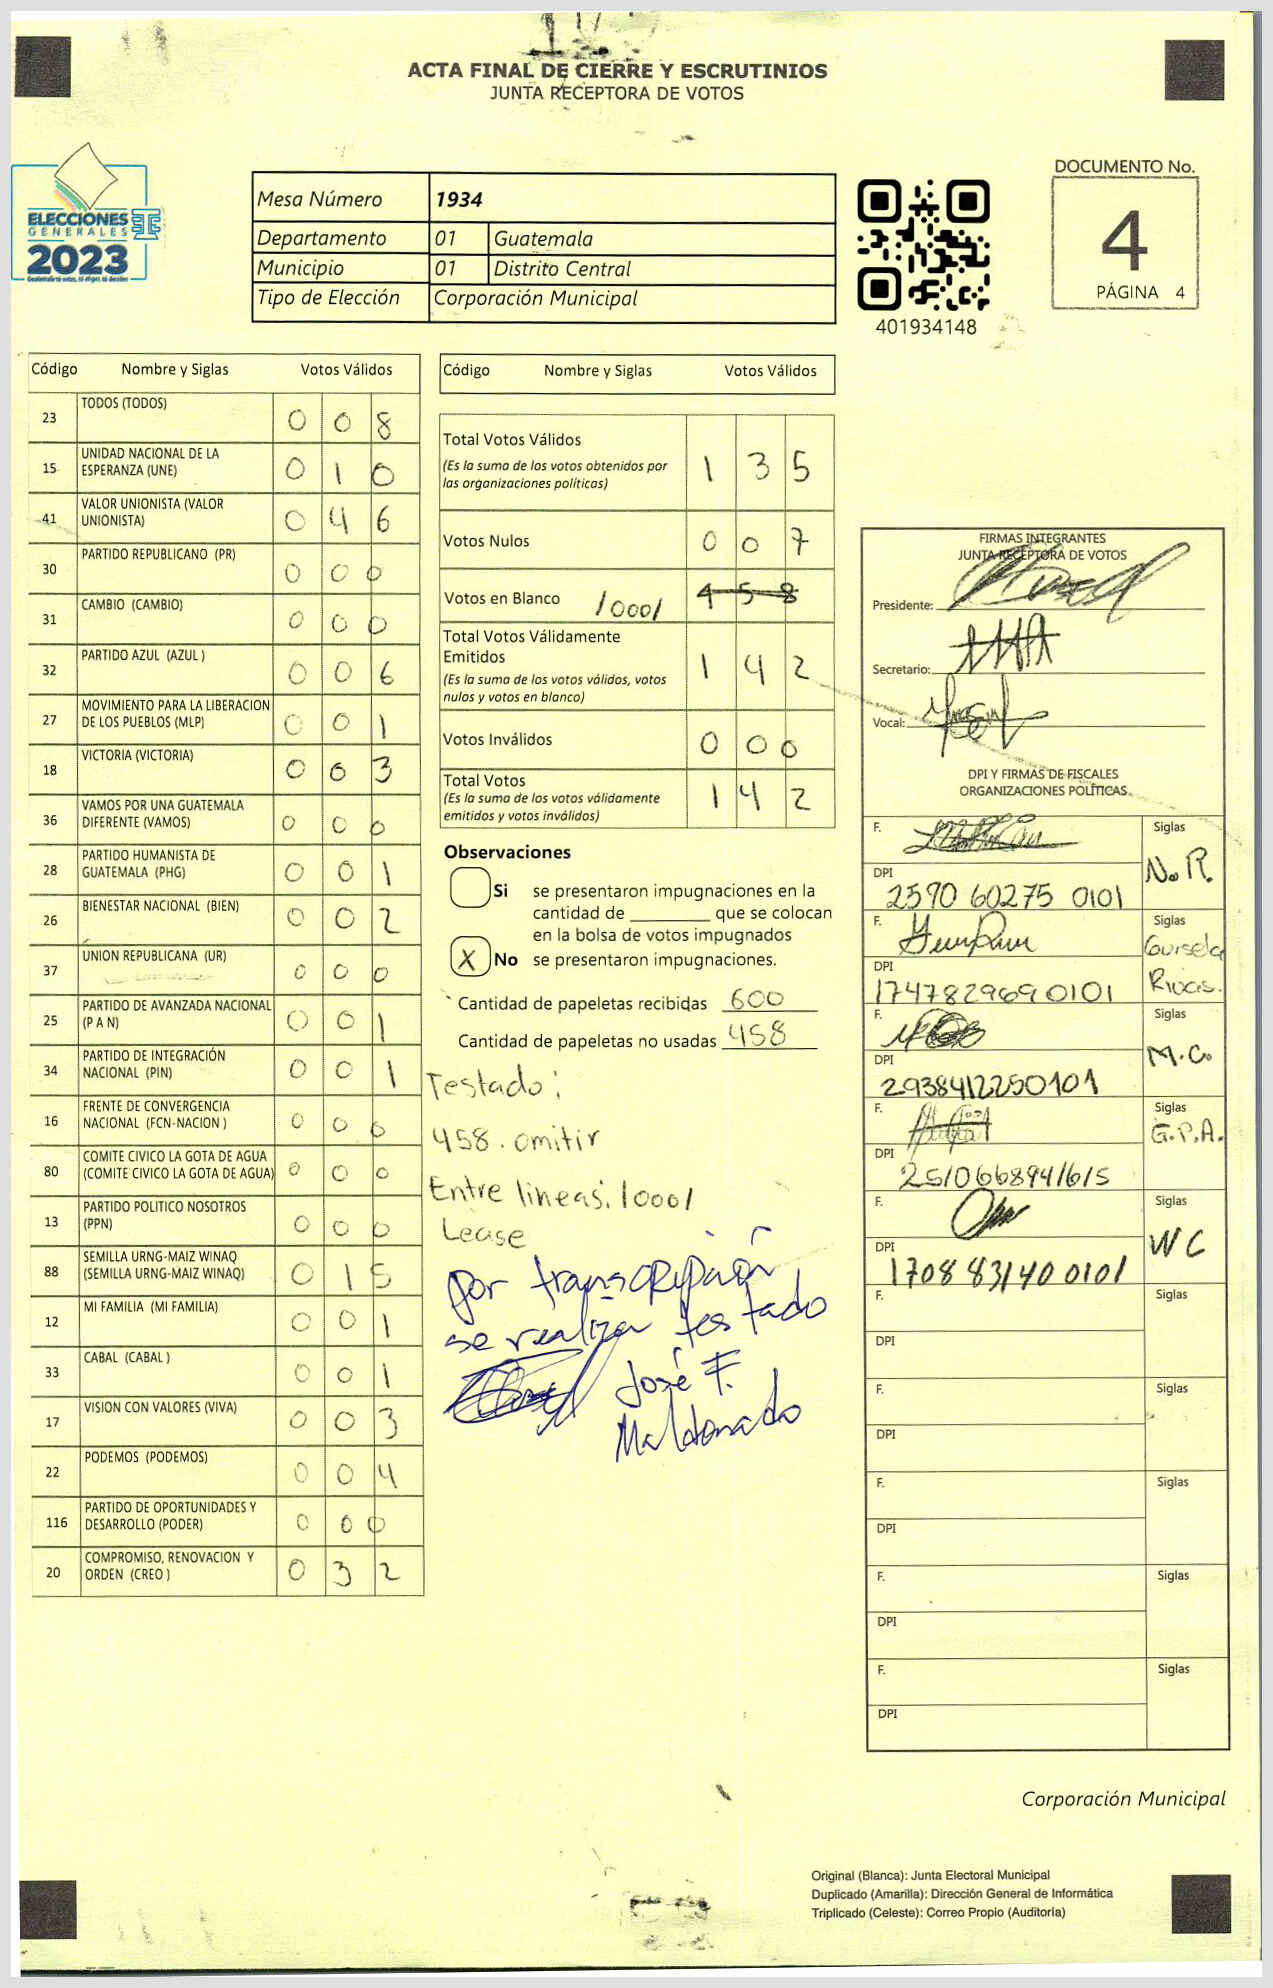 ACTA FINAL DE CIERRE Y ESCRUTINIOS
JUNTA RECEPTORA DE VOTOS
ELECCIONES
GENERALES
2023
Mesa Número 1934
Departamento 01 Guatemala
Municipio 01 Distrito Central
Tipo de Elección Corporación Municipal
401934148
DOCUMENTO No.
4
PÁGINA 4
Código Nombre y Siglas Votos Válidos
23 TODOS (TODOS) 0 0 8
15 UNIDAD NACIONAL DE LA
ESPERANZA (UNE) 0 1 0
41 VALOR UNIONISTA (VALOR
UNIONISTA) 0 4 6
30 PARTIDO REPUBLICANO (PR) 0 0 0
31 CAMBIO (CAMBIO) 0 0 0
32 PARTIDO AZUL (AZUL ) 0 0 6
27 MOVIMIENTO PARA LA LIBERACION
DE LOS PUEBLOS (MLP) 0 0 1
18 VICTORIA (VICTORIA) 0 0 3
36 VAMOS POR UNA GUATEMALA
DIFERENTE (VAMOS) 0 0 0
28 PARTIDO HUMANISTA DE
GUATEMALA (PHG) 0 0 1
26 BIENESTAR NACIONAL (BIEN) 0 0 2
37 UNION REPUBLICANA (UR) 0 0 0
25 PARTIDO DE AVANZADA NACIONAL
(P A N) 0 0 1
34 PARTIDO DE INTEGRACIÓN
NACIONAL (PIN) 0 0 1
16 FRENTE DE CONVERGENCIA
NACIONAL (FCN-NACION ) 0 0 0
80 COMITE CIVICO LA GOTA DE AGUA
(COMITE CIVICO LA GOTA DE AGUA) 0 0 0
13 PARTIDO POLITICO NOSOTROS
(PPN) 0 0 0
88 SEMILLA URNG-MAIZ WINAQ
(SEMILLA URNG-MAIZ WINAQ) 0 1 5
12 MI FAMILIA (MI FAMILIA) 0 0 1
33 CABAL (CABAL ) 0 0 1
17 VISION CON VALORES (VIVA) 0 0 3
22 PODEMOS (PODEMOS) 0 0 4
116 PARTIDO DE OPORTUNIDADES Y
DESARROLLO (PODER) 0 0 0
20 COMPROMISO, RENOVACION Y
ORDEN (CREO ) 0 3 2
Código Nombre y Siglas Votos Válidos
Total Votos Válidos
(Es la suma de los votos obtenidos por
las organizaciones políticas) 1 3 5
Votos Nulos 0 0 7
Votos en Blanco /000/ 4 5 8
Total Votos Válidamente
Emitidos
(Es la suma de los votos válidos, votos
nulos y votos en blanco) 1 4 2
Votos Inválidos 0 0 0
Total Votos
(Es la suma de los votos válidamente
emitidos y votos inválidos) 1 4 2
Observaciones
Si se presentaron impugnaciones en la
cantidad de ________ que se colocan
en la bolsa de votos impugnados
X No se presentaron impugnaciones.
Cantidad de papeletas recibidas 600
Cantidad de papeletas no usadas 458
Testado:
458. omitir
Entre lineas: /000/
Lease
por transcripción
se realiza testado
José F.
Maldonado
FIRMAS INTEGRANTES
JUNTA RECEPTORA DE VOTOS
Presidente:
Secretario:
Vocal:
DPI Y FIRMAS DE FISCALES
ORGANIZACIONES POLÍTICAS
F. Siglas
N.R.
DPI
2590 60275 0101
F. Siglas
Guisela
Rivas.
DPI
1747829690101
F. Siglas
M.C.
DPI
2938412250101
F. Siglas
G.P.A.
DPI
2510668941615
F. Siglas
WC
DPI
1708 83140 0101
F. Siglas
DPI
F. Siglas
DPI
F. Siglas
DPI
F. Siglas
DPI
F. Siglas
DPI
Corporación Municipal
Original (Blanca): Junta Electoral Municipal
Duplicado (Amarilla): Dirección General de Informática
Triplicado (Celeste): Correo Propio (Auditoría)